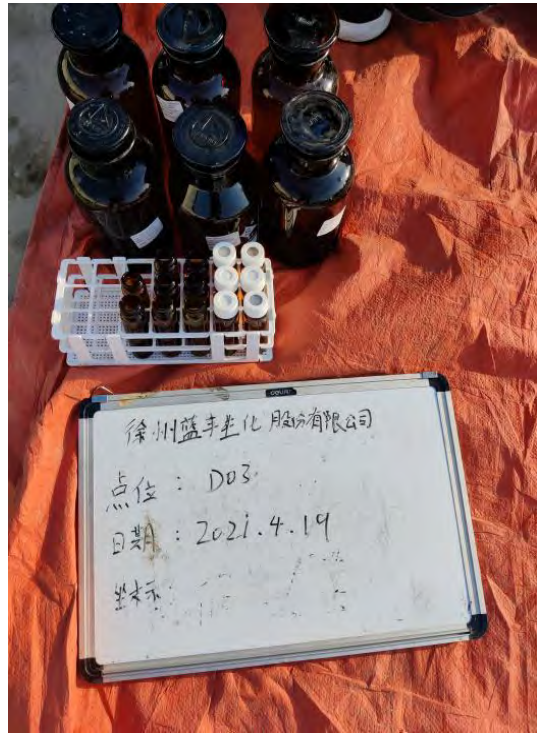 deli
徐州蓝丰生化股份有限公司
点位：D03
日期：2021.4.19
坐标：